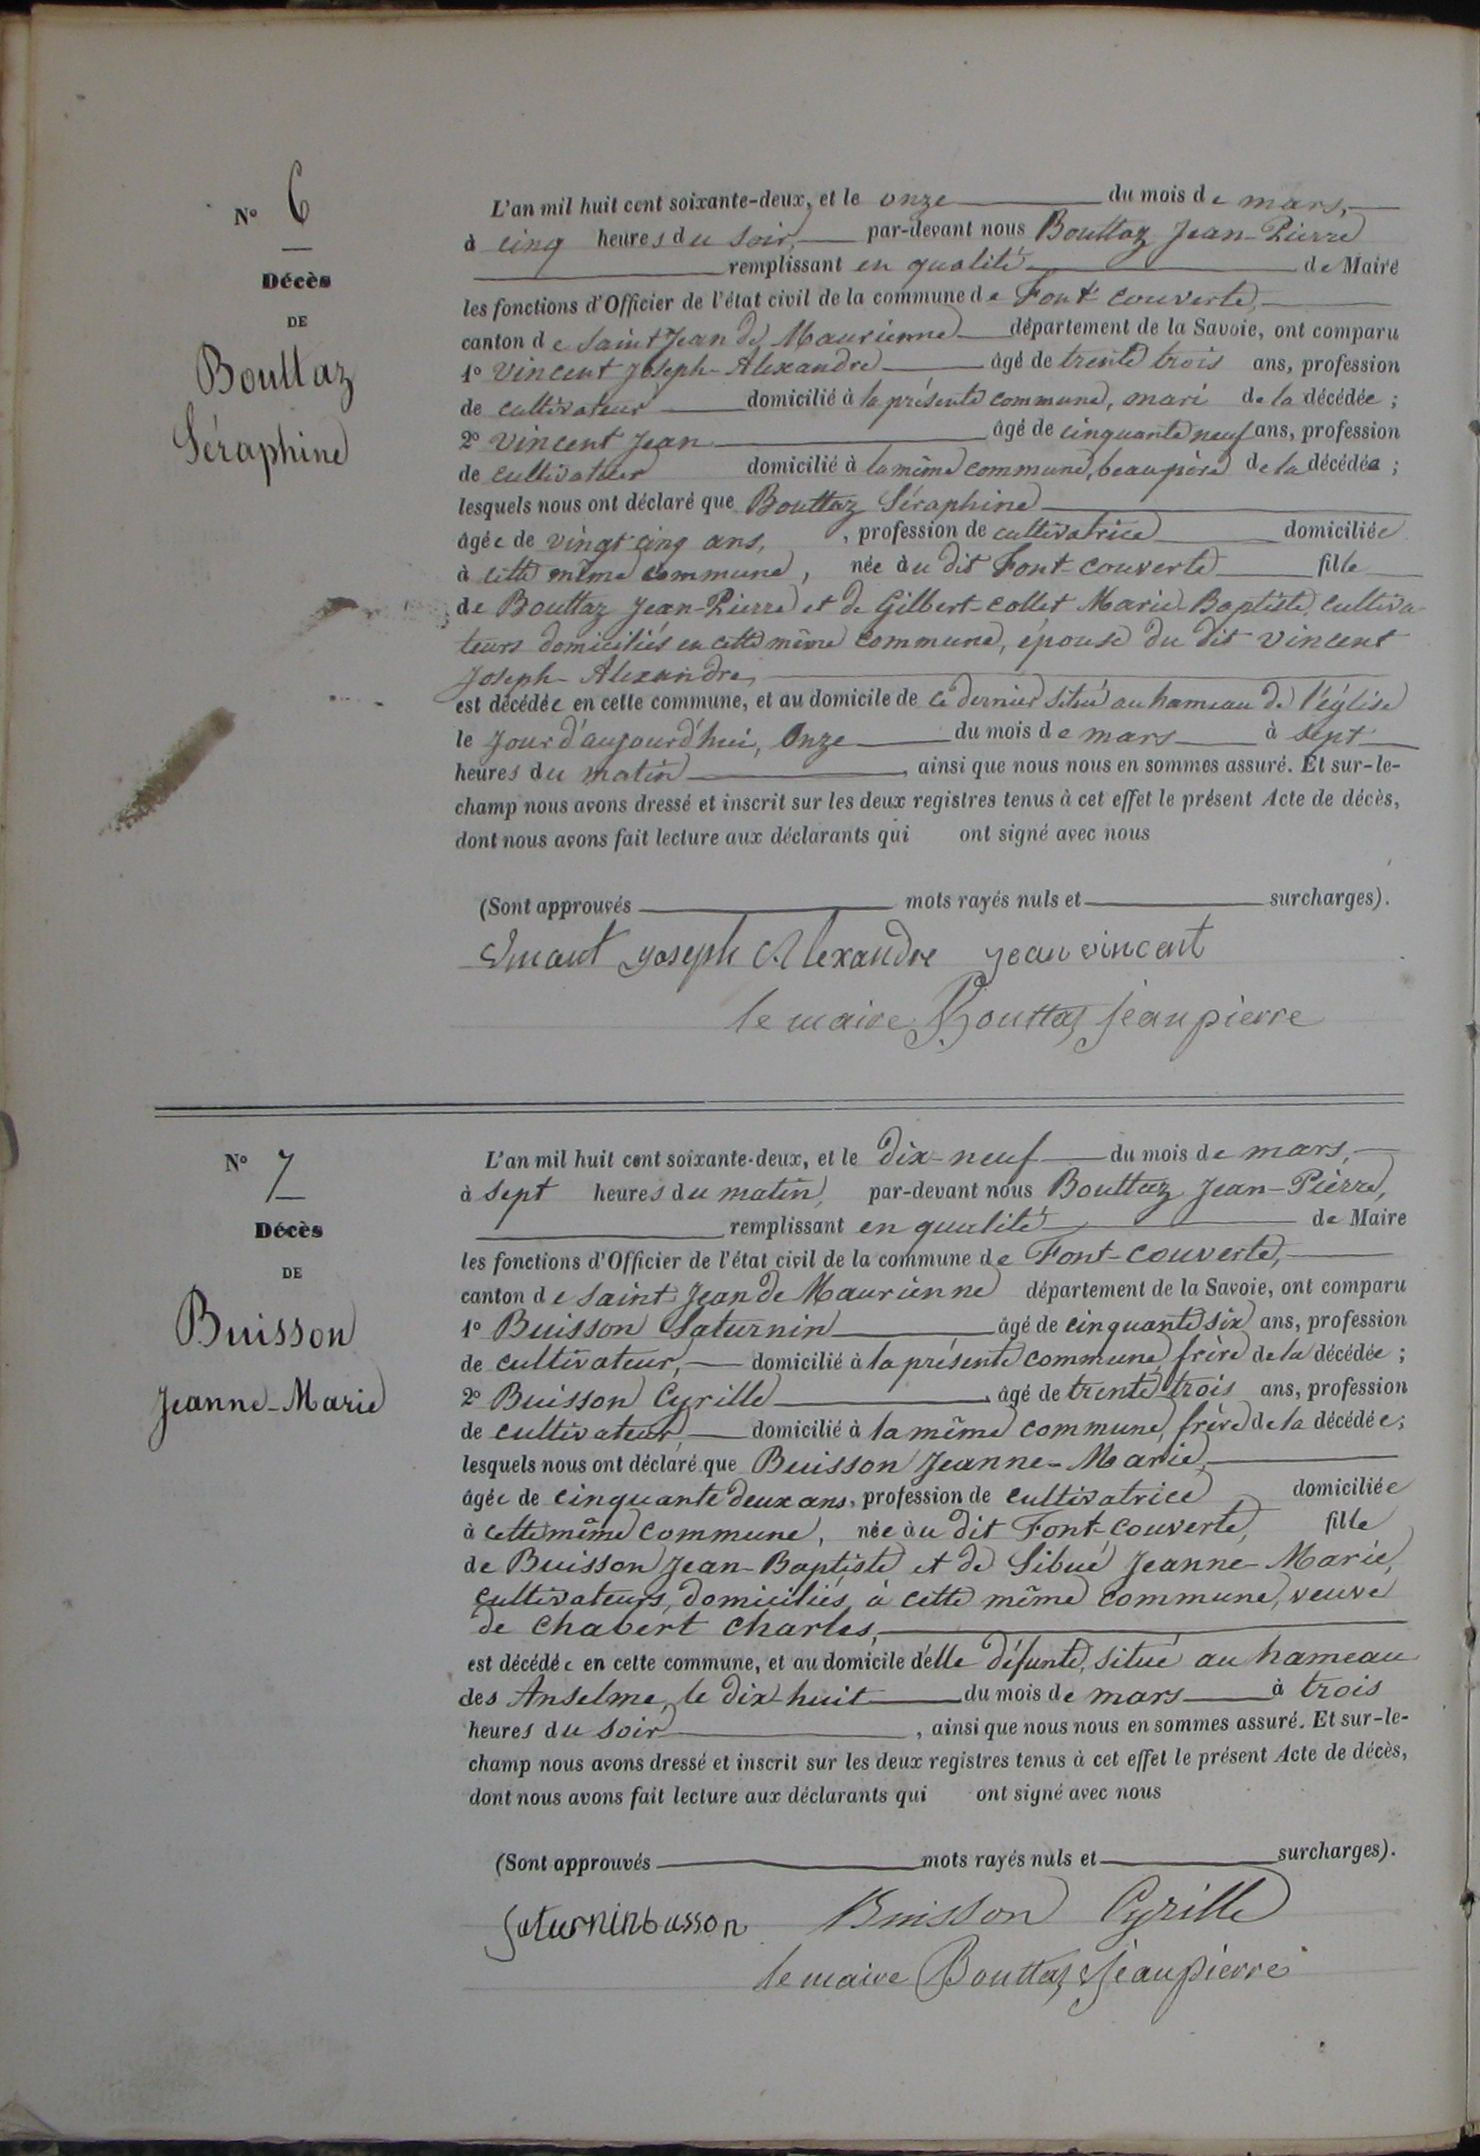 N° 6
Décès
DE
Bouttaz
Séraphine
L'an mil huit cent soixante-deux, et le onze du mois de mars,
à cinq heures du soir, par-devant nous Bouttaz Jean-Pierre
remplissant en qualité de Maire
les fonctions d'Officier de l'état civil de la commune de Font-couverte,
canton de Saint Jean de Maurienne département de la Savoie, ont comparu
1° Vincent Joseph-Alexandre âgé de trente trois ans, profession
de cultivateur domicilié à la présente commune, mari de la décédée ;
2° Vincent Jean âgé de cinquante neuf ans, profession
de cultivateur domicilié à la même commune, beau père de la décédée ;
lesquels nous ont déclaré que Bouttaz Séraphine
âgée de vingt cinq ans, , profession de cultivatrice domiciliée
à cette même commune, née au dit Font-couverte fille
de Bouttaz Jean-Pierre et de Gilbert-collet Marie-Baptiste, cultiva-
teurs domiciliés en cette même commune, épouse du dit Vincent
Joseph-Alexandre,
est décédée en cette commune, et au domicile de ce dernier situé au hameau de l'église
le Jour d'aujourd'hui, Onze du mois de mars à sept
heures du matin , ainsi que nous nous en sommes assuré. Et sur-le-
champ nous avons dressé et inscrit sur les deux registres tenus à cet effet le présent Acte de décès,
dont nous avons fait lecture aux déclarants qui ont signé avec nous
(Sont approuvés mots rayés nuls et surcharges).
joseph Alexandre jean vincent
le maire Bouttaz jean pierre
N° 7
Décès
DE
Buisson
Jeanne-Marie
L'an mil huit cent soixante-deux, et le dix-neuf du mois de mars,
à sept heures du matin, par-devant nous Bouttaz Jean-Pierre,
remplissant en qualité de Maire
les fonctions d'Officier de l'état civil de la commune de Font-couverte,
canton de Saint Jean de Maurienne département de la Savoie, ont comparu
1° Buisson Saturnin âgé de cinquante six ans, profession
de cultivateur, domicilié à la présente commune, frère de la décédée ;
2° Buisson Cyrille âgé de trente trois ans, profession
de cultivateur, domicilié à la même commune, frère de la décédée ;
lesquels nous ont déclaré que Buisson Jeanne-Marie,
âgée de cinquante deux ans, profession de cultivatrice domiciliée
à cette même commune, née au dit Font-couverte, fille
de Buisson Jean-Baptiste et de Sibué Jeanne-Marie,
cultivateurs, domiciliés à cette même commune, veuve
de Chabert Charles,
est décédée en cette commune, et au domicile d'elle défunte, situé au hameau
des Anselme, le dix-huit du mois de mars à trois
heures du soir , ainsi que nous nous en sommes assuré. Et sur-le-
champ nous avons dressé et inscrit sur les deux registres tenus à cet effet le présent Acte de décès,
dont nous avons fait lecture aux déclarants qui ont signé avec nous
(Sont approuvés mots rayés nuls et surcharges).
saturnin busson Buisson Cyrille
le maire Bouttaz jean pierre